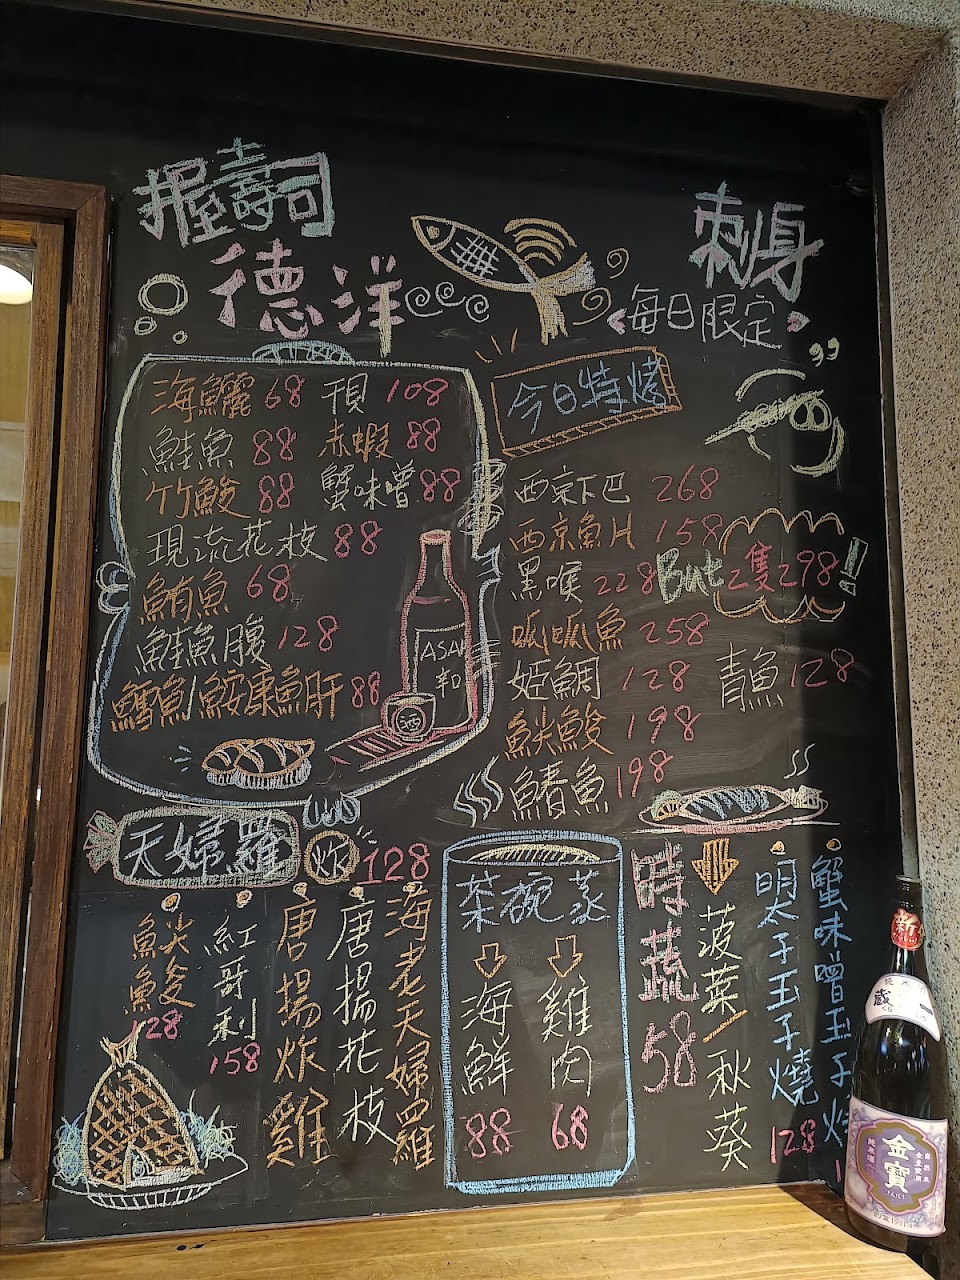 握壽司
德洋
刺身
每日限定
海鱺 68
鮭魚 88
竹鮻 88
現流花枝 88
鮪魚 68
鮭魚腹 128
鱈魚/鮟康魚肝 88
干貝 108
赤蝦 88
蟹味噌 88
ASAHI
酒
今日特烤
西京下巴 268
西京魚片 158
黑喉 228 But 2隻298!
呱呱魚 258
姫鯛 128
青魚 128
尖鮻 198
鰆魚 198
天婦羅 炸 128
尖鮻 128
紅哥利 158
唐揚炸雞
唐揚花枝
海老天婦羅
茶碗蒸
海鮮 88
雞肉 68
時蔬 58
菠菜/秋葵
明太子玉子燒 128
蟹味噌玉子燒
新
金寶
純米酒